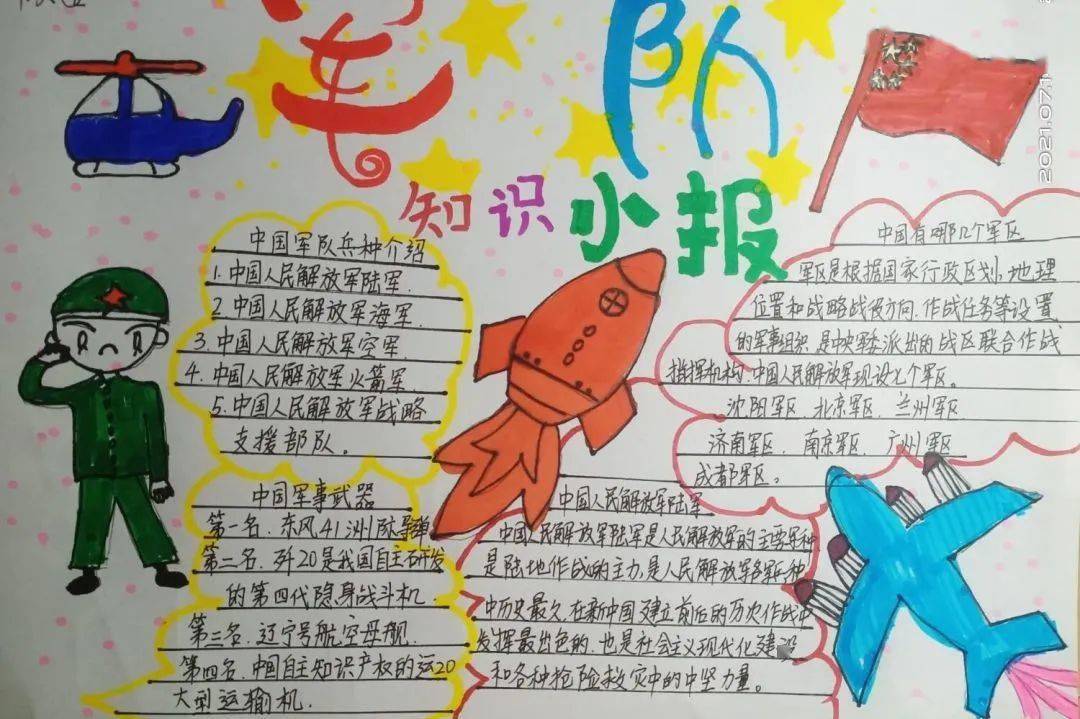 军队
知识小报
2021.07.1
中国军队兵种介绍
1.中国人民解放军陆军.
2.中国人民解放军海军.
3.中国人民解放军空军.
4.中国人民解放军火箭军.
5.中国人民解放军战略
支援部队。
中国军事武器
第一名.东风41洲际导弹
第二名.歼20是我国自主研发
的第四代隐身战斗机
第三名.辽宁号航空母舰.
第四名.中国自主知识产权的运20
大型运输机.
中国有哪几个军区
军区是根据国家行政区划,地理
位置和战略战役方向.作战任务等设置
的军事组织.是中央军委派出的战区联合作战
指挥机构.中国人民解放军现设七个军区。
沈阳军区.北京军区.兰州军区
济南军区.南京军区.广州军区
成都军区。
中国人民解放军陆军
中国人民解放军陆军是人民解放军的主要军种,
是陆地作战的主力.是人民解放军各军兵种
中历史最久.在新中国建立前后的历次作战中
发挥最出色的.也是社会主义现代化建设
和各种抢险救灾中的中坚力量。